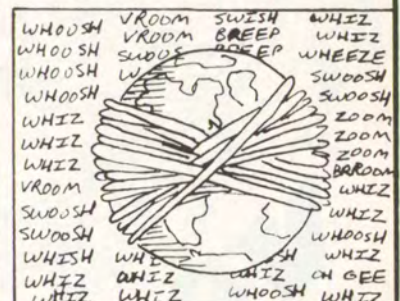 WHOOSH VROOM SWISH WHIZ
WHOOSH VROOM BREEP WHIZ
WHOOSH BREEP WHEEZE
WHOOSH SWOOSH
WHIZ SWOOSH
WHIZ ZOOM
WHIZ ZOOM
VROOM ZOOM
SWOOSH BRROOM
SWOOSH WHIZ
WHISH WHIZ
WHIZ WHIZ WHIZ WHOOSH
WHIZ WHIZ WHOOSH WHIZ
OH GEE
WHIZ